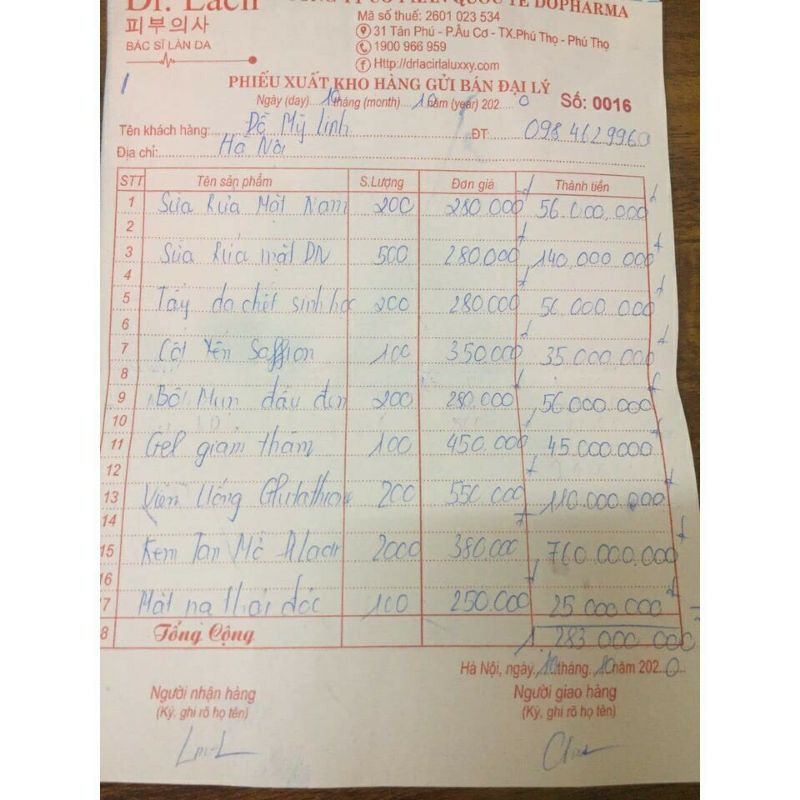 Dr. Lacir
CÔNG TY CỔ PHẦN QUỐC TẾ DOPHARMA
피부의사
BÁC SĨ LÀN DA
Mã số thuế: 2601 023 534
31 Tân Phú - P.Âu Cơ - TX.Phú Thọ - Phú Thọ
1900 966 959
Http://drlacirlaluxxy.com/
PHIẾU XUẤT KHO HÀNG GỬI BÁN ĐẠI LÝ
Ngày (day) 10 tháng (month) 10 năm (year) 2020
Số: 0016
Tên khách hàng: Đỗ Mỹ Linh ĐT: 098 4629960
Địa chỉ: Hà Nội
STT Tên sản phẩm S.Lượng Đơn giá Thành tiền
1 Sữa Rửa Mặt Nam 200 280.000đ 56.000.000đ
2
3 Sữa Rửa mặt DN 500 280.000đ 140.000.000đ
4
5 Tẩy da chết sinh học 200 280.000đ 56.000.000đ
6
7 Cốt Yến Saffron 100 350.000đ 35.000.000đ
8
9 Bột Mụn đầu đen 200 280.000đ 56.000.000đ
10
11 Gel giảm thâm 100 450.000đ 45.000.000đ
12
13 Viên Uống Glutathione 200 550.000đ 110.000.000đ
14
15 Kem Tan Mỡ 2000 380.000 760.000.000đ
16
17 Mặt nạ thải độc 100 250.000đ 25.000.000đ
18 Tổng Cộng 1.283.000.000
Hà Nội, ngày 10 tháng 10 năm 2020
Người nhận hàng Người giao hàng
(Ký, ghi rõ họ tên) (Ký, ghi rõ họ tên)